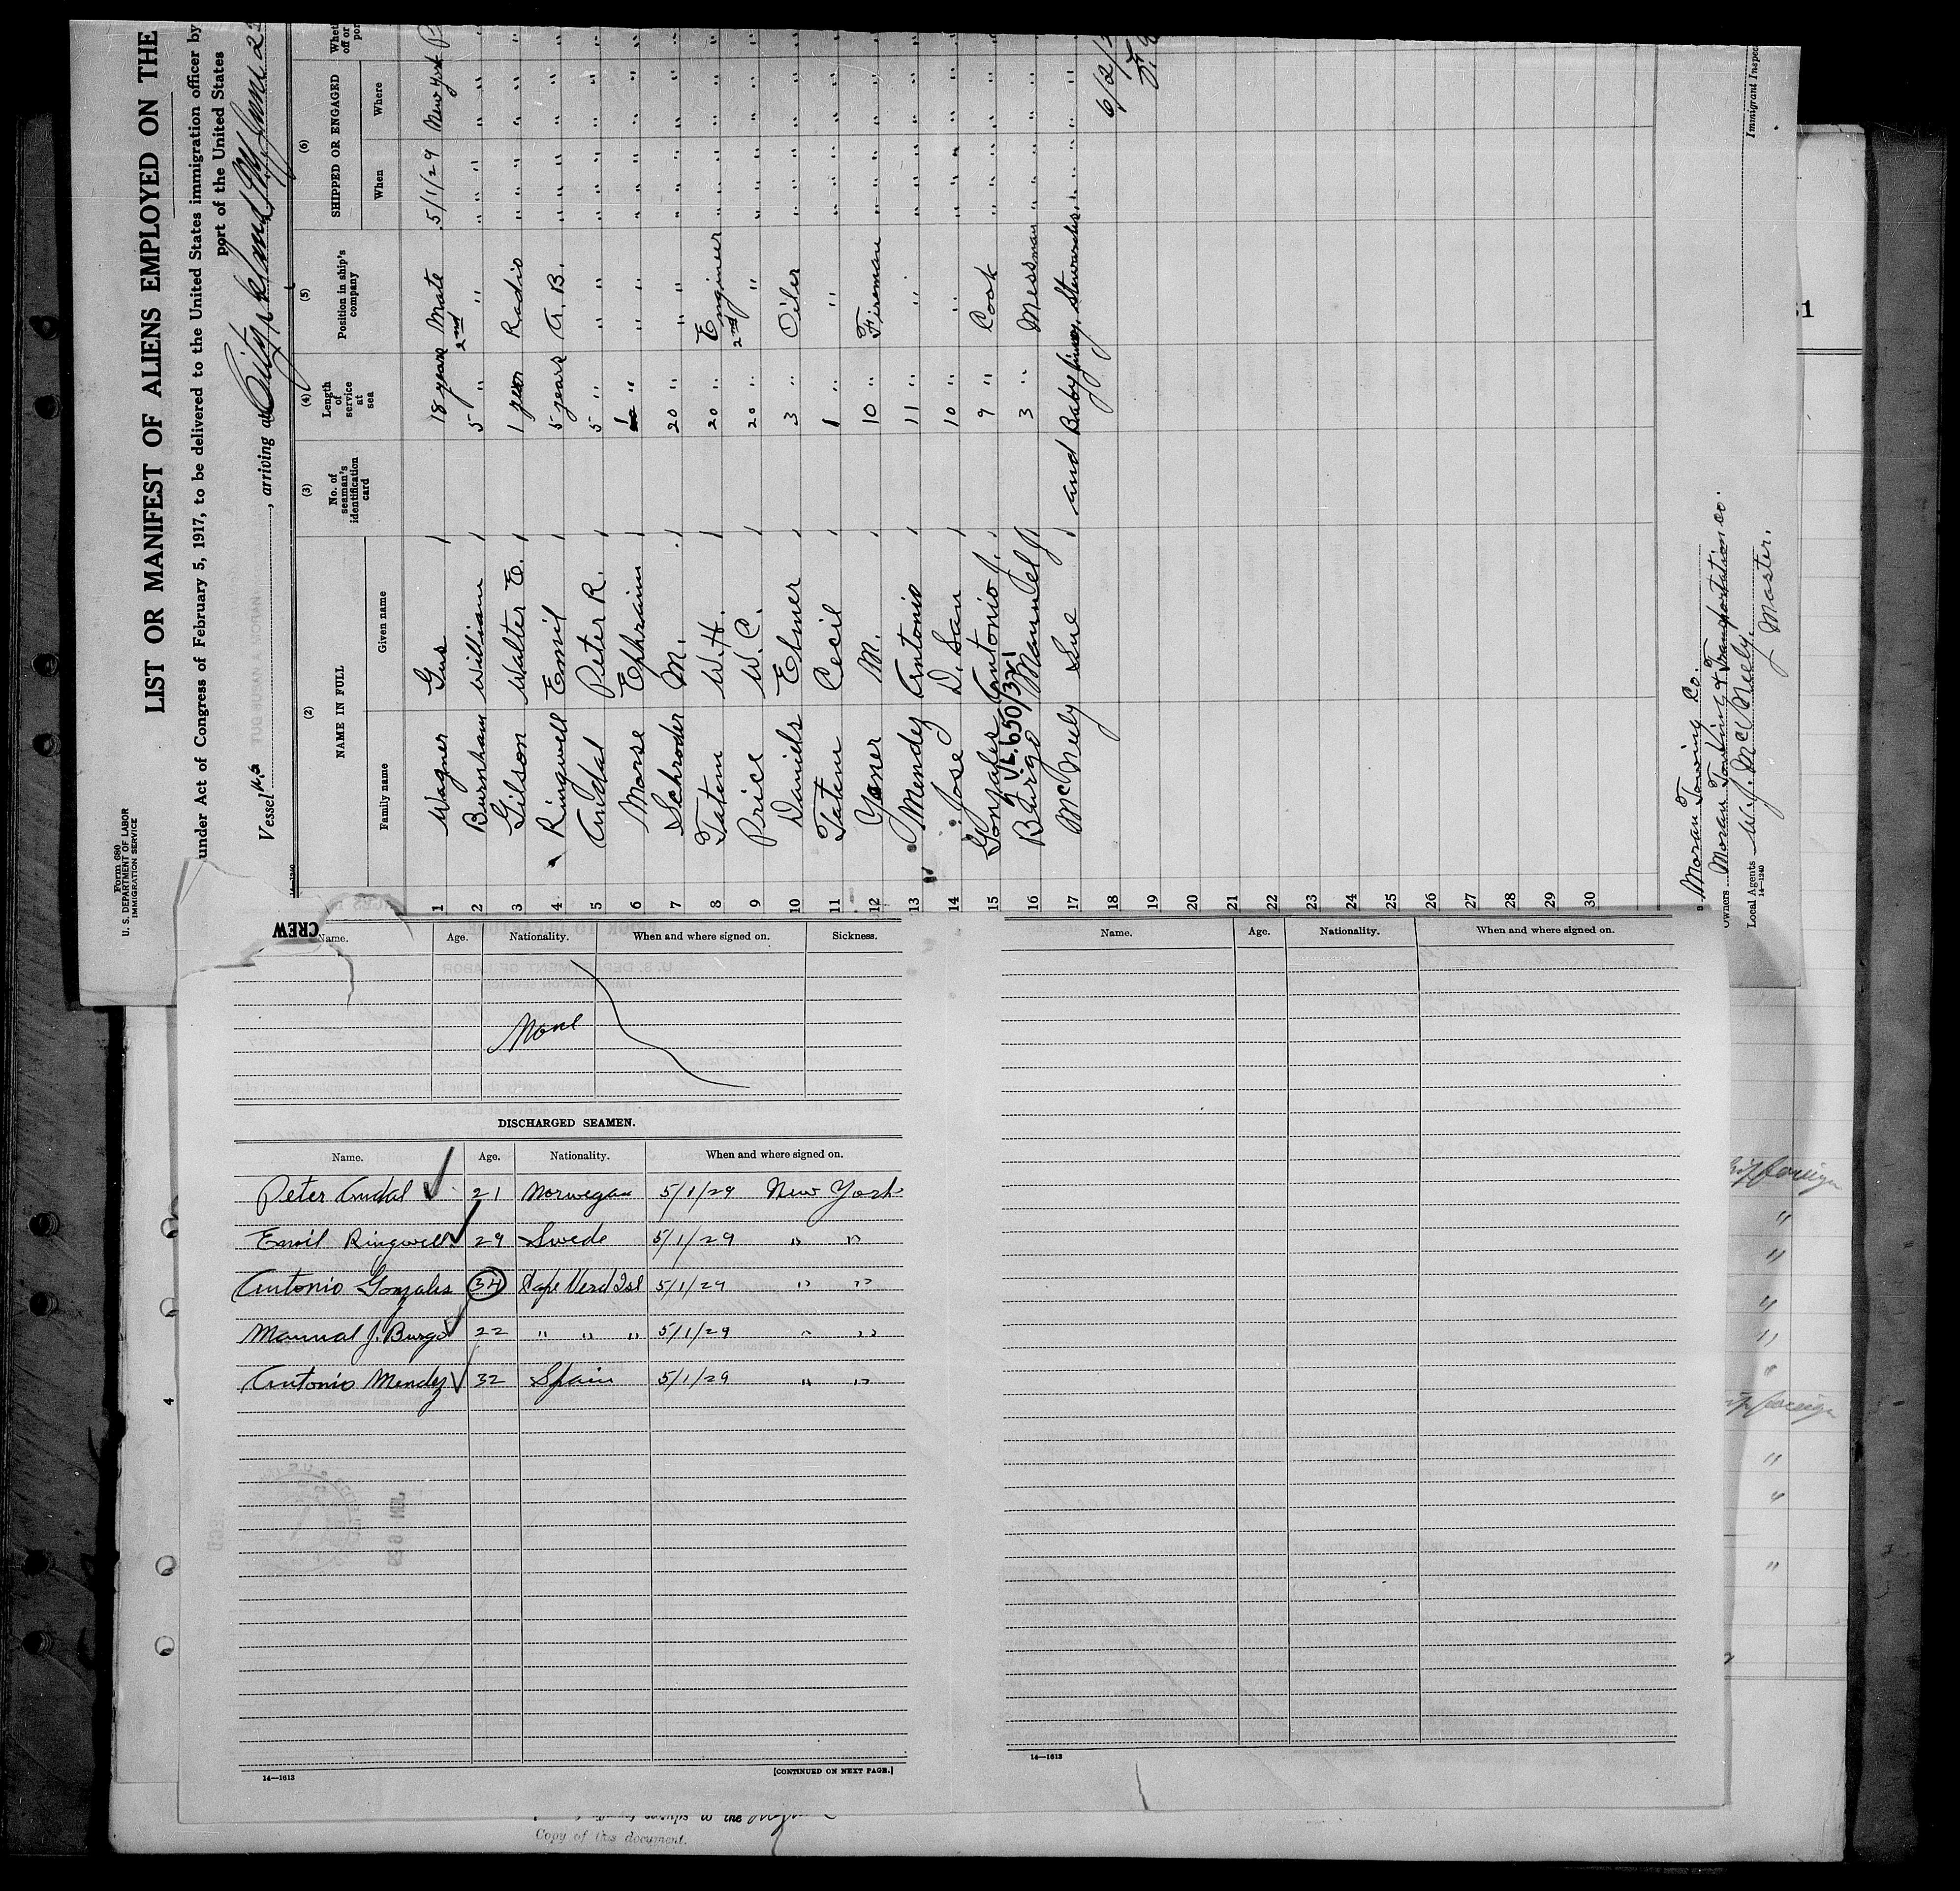 Form 680
U. S. DEPARTMENT OF LABOR
IMMIGRATION SERVICE
LIST OR MANIFEST OF ALIENS EMPLOYED ON THE
under Act of Congress of February 5, 1917, to be delivered to the United States immigration officer by
port of the United States
Vessel , arriving at
(2) (3) (4) (5) (6)
NAME IN FULL No. of seaman's identification card Length of service at sea Position in ship's company SHIPPED OR ENGAGED
Family name Given name When Where
1 Wagner Gus 18 years Mate 5/1/29 New York
2 Burnham William 5 " 2nd " " " " " "
3 Gilson Walter E. 1 year Radio " " " " "
4 Ringwell Emil 5 years A. B. " " " " "
5 Andal Peter R. 5 " " " " " " "
6 Morse Ephraim " " " " " " "
7 Schroder M. 20 " " " " " " "
8 Tatem W. H. 20 " Engineer " " " " "
9 Price W. C. 20 " 2nd " " " " " "
10 Daniels Elmer 3 " Oiler " " " " "
11 Tatem Cecil 1 " " " " " " "
12 Yaner M. 10 " Fireman " " " " "
13 Mendez Antonio 11 " " " " " " "
14 Jose D. San 10 " " " " " " "
15 Gonzales Antonio J. 9 " Cook " " " " "
V.L. 650/321
16 Burgo Manuel J. 3 " Messman " " " " "
17 McNeely Sue and Baby Stewardess " " " "
18
19
20
21
22
23
24
25
26
27
28
29
30
Moran Towing Co.
Owners Moran Towing & Transportation Co.
Local Agents W. J. McNeely.
Master.
14—1240
Immigrant Inspec
CREW
Name. Age. Nationality. When and where signed on. Sickness.
None
DISCHARGED SEAMEN.
Name. Age. Nationality. When and where signed on.
Peter Andal 21 Norwegan 5/1/29 New York
Emil Ringwell 29 Swede 5/1/29 " "
Antonio Gonzales 34 Cape Verd Isl 5/1/29 " "
Mannal J. Burgo 22 " " " 5/1/29 " "
Antonio Mendez 32 Spain 5/1/29 " "
14—1613 [CONTINUED ON NEXT PAGE.]
Name. Age. Nationality. When and where signed on.
14—1613
4
Copy of this document.